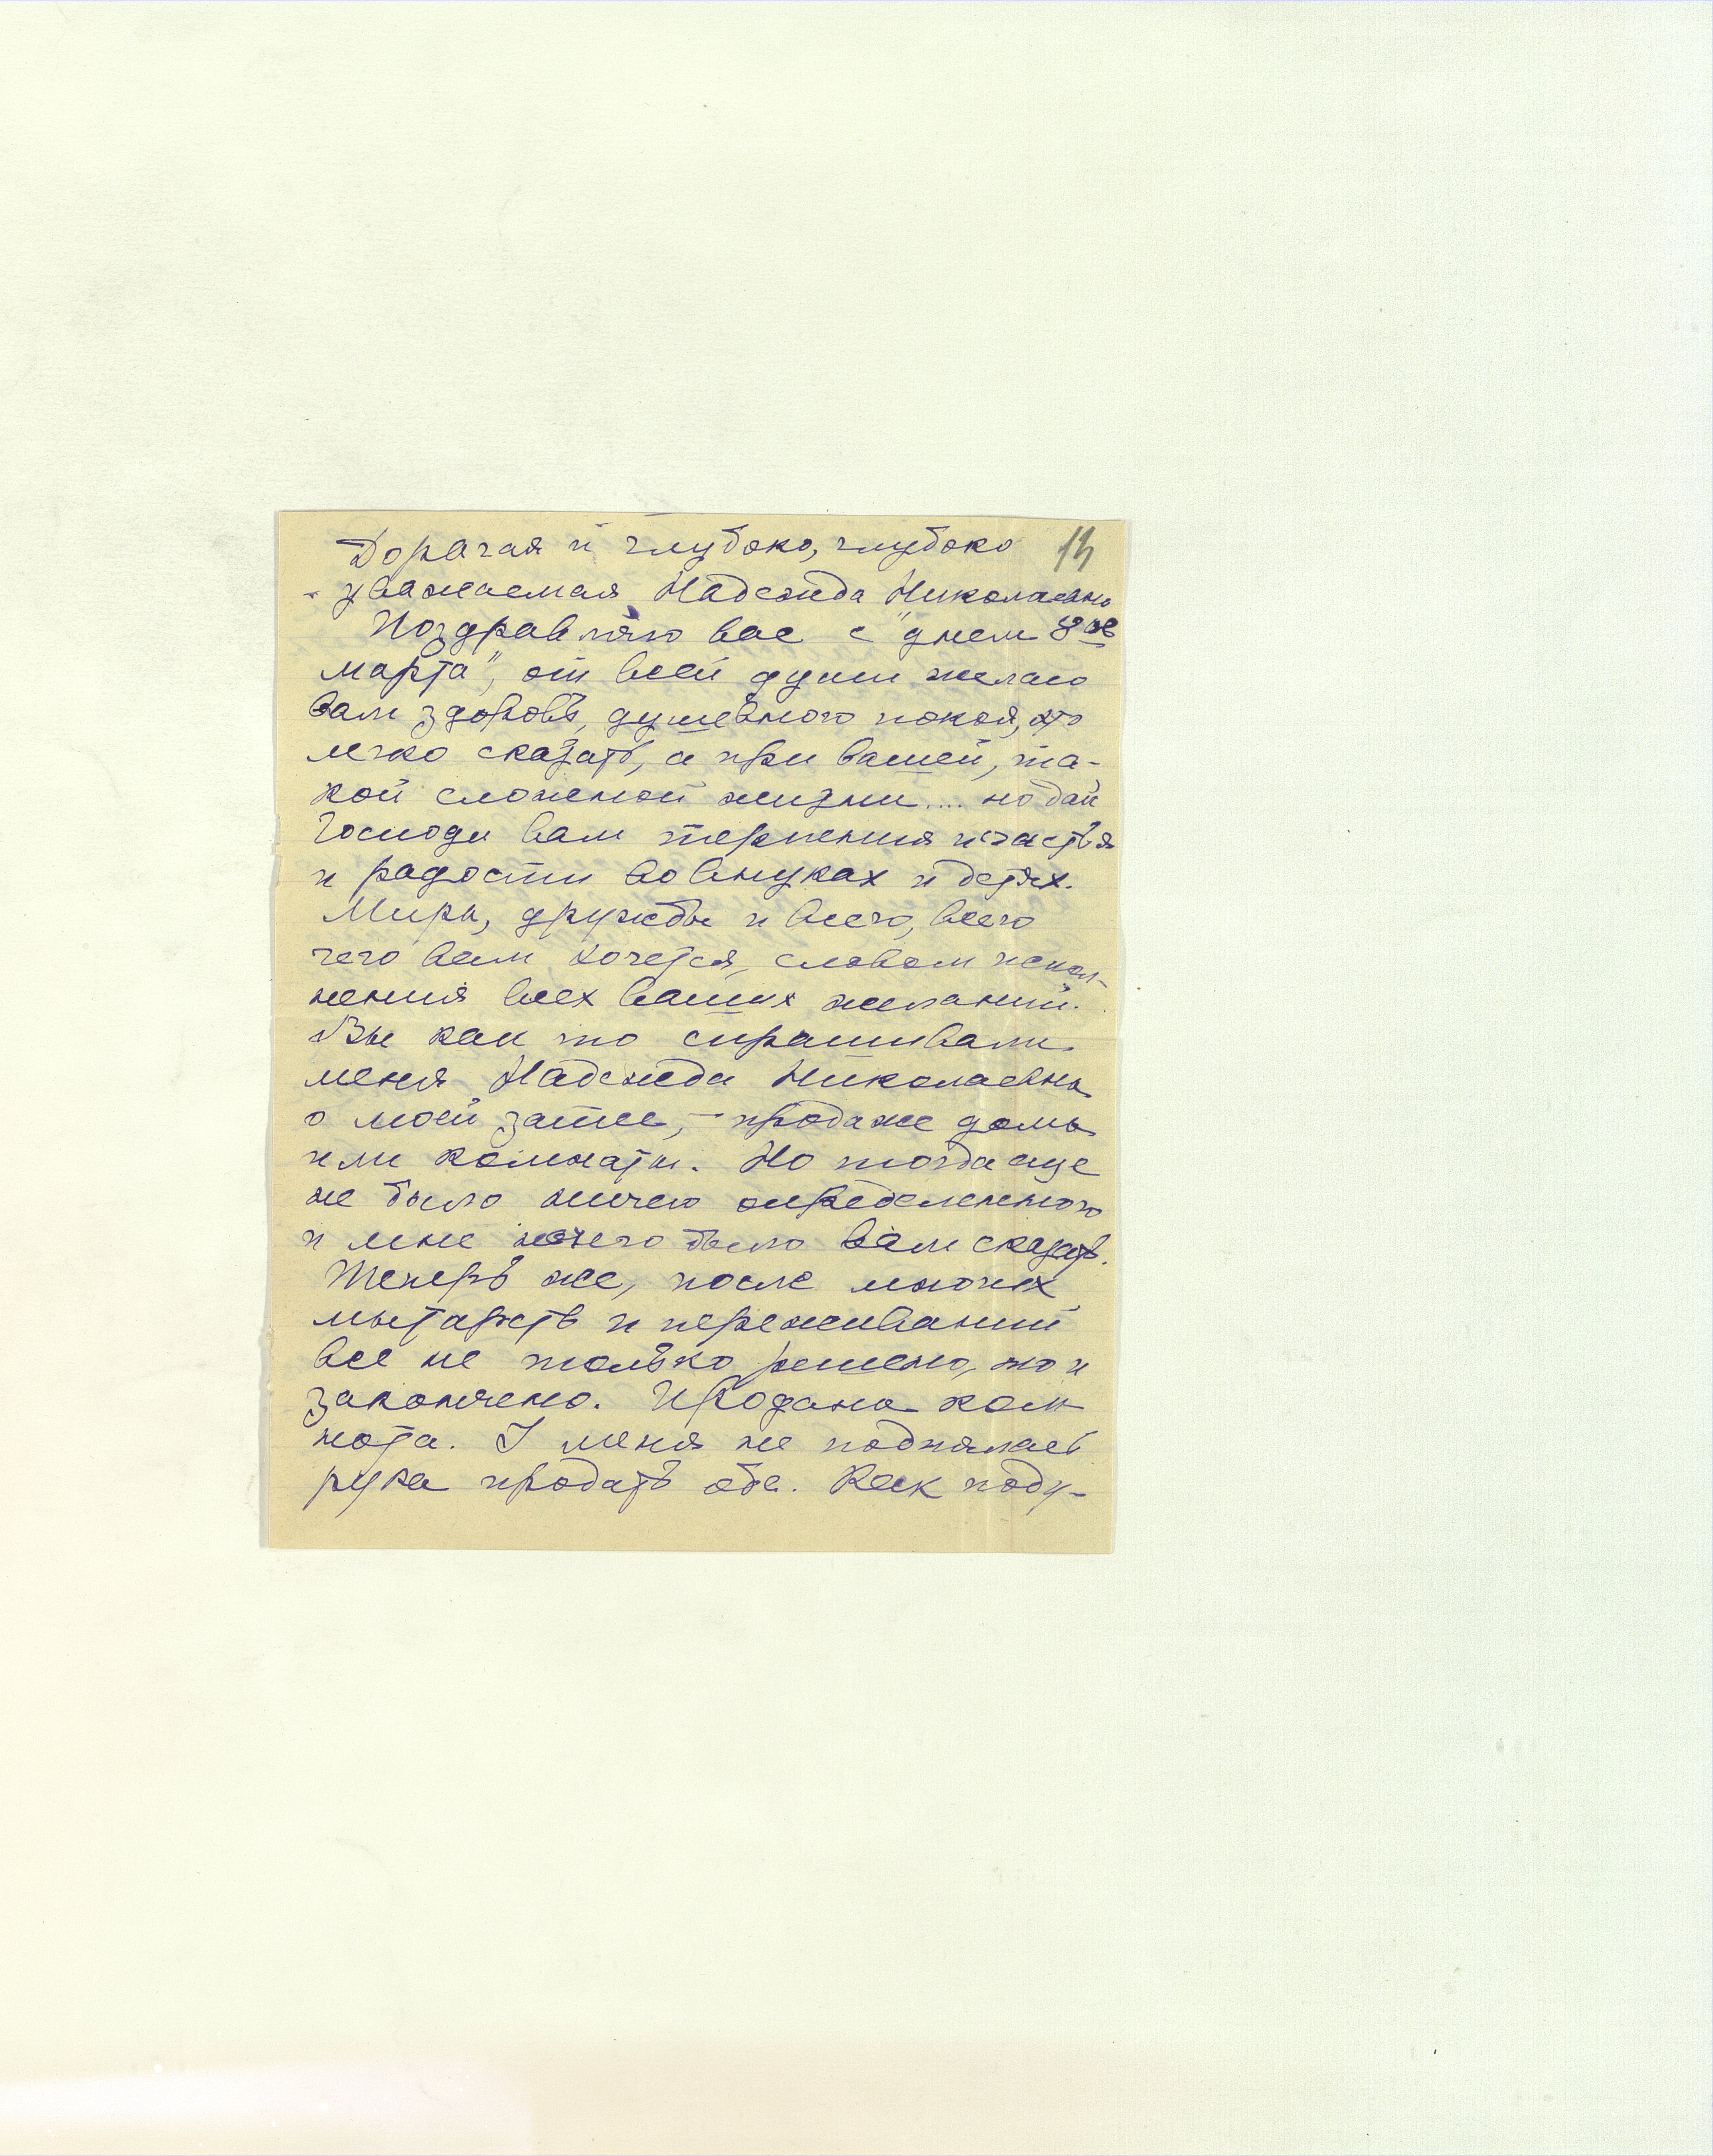 Дорагая и глубоко, глубоко 13
уважаемая Надежда Николаевна
Поздравляю вас с "днем 8ое
марта", от всей души желаю
вам здоровь, душевного покоя, это
легко сказать, а при вашей, та-
кой сложеной жизни.... но дай
Господи вам терпения и счастья
и радости во внуках и детях.
Мира, дружбы и всего, всего
чего вам хочется, словом испол-
нения всех ваших желаний.
Вы как то спрашивали
меня Надежда Николаевна
о моей затее, – продаже дома
или комнаты. Но тогда еще
не было ничего определенного
и мне нечего было вам сказать.
Теперь же, после многих
мытарств и переживаний
все не только решено, но и
закончено. Продана ком
ната. У меня не поднялась
рука продать оба. Как поду-